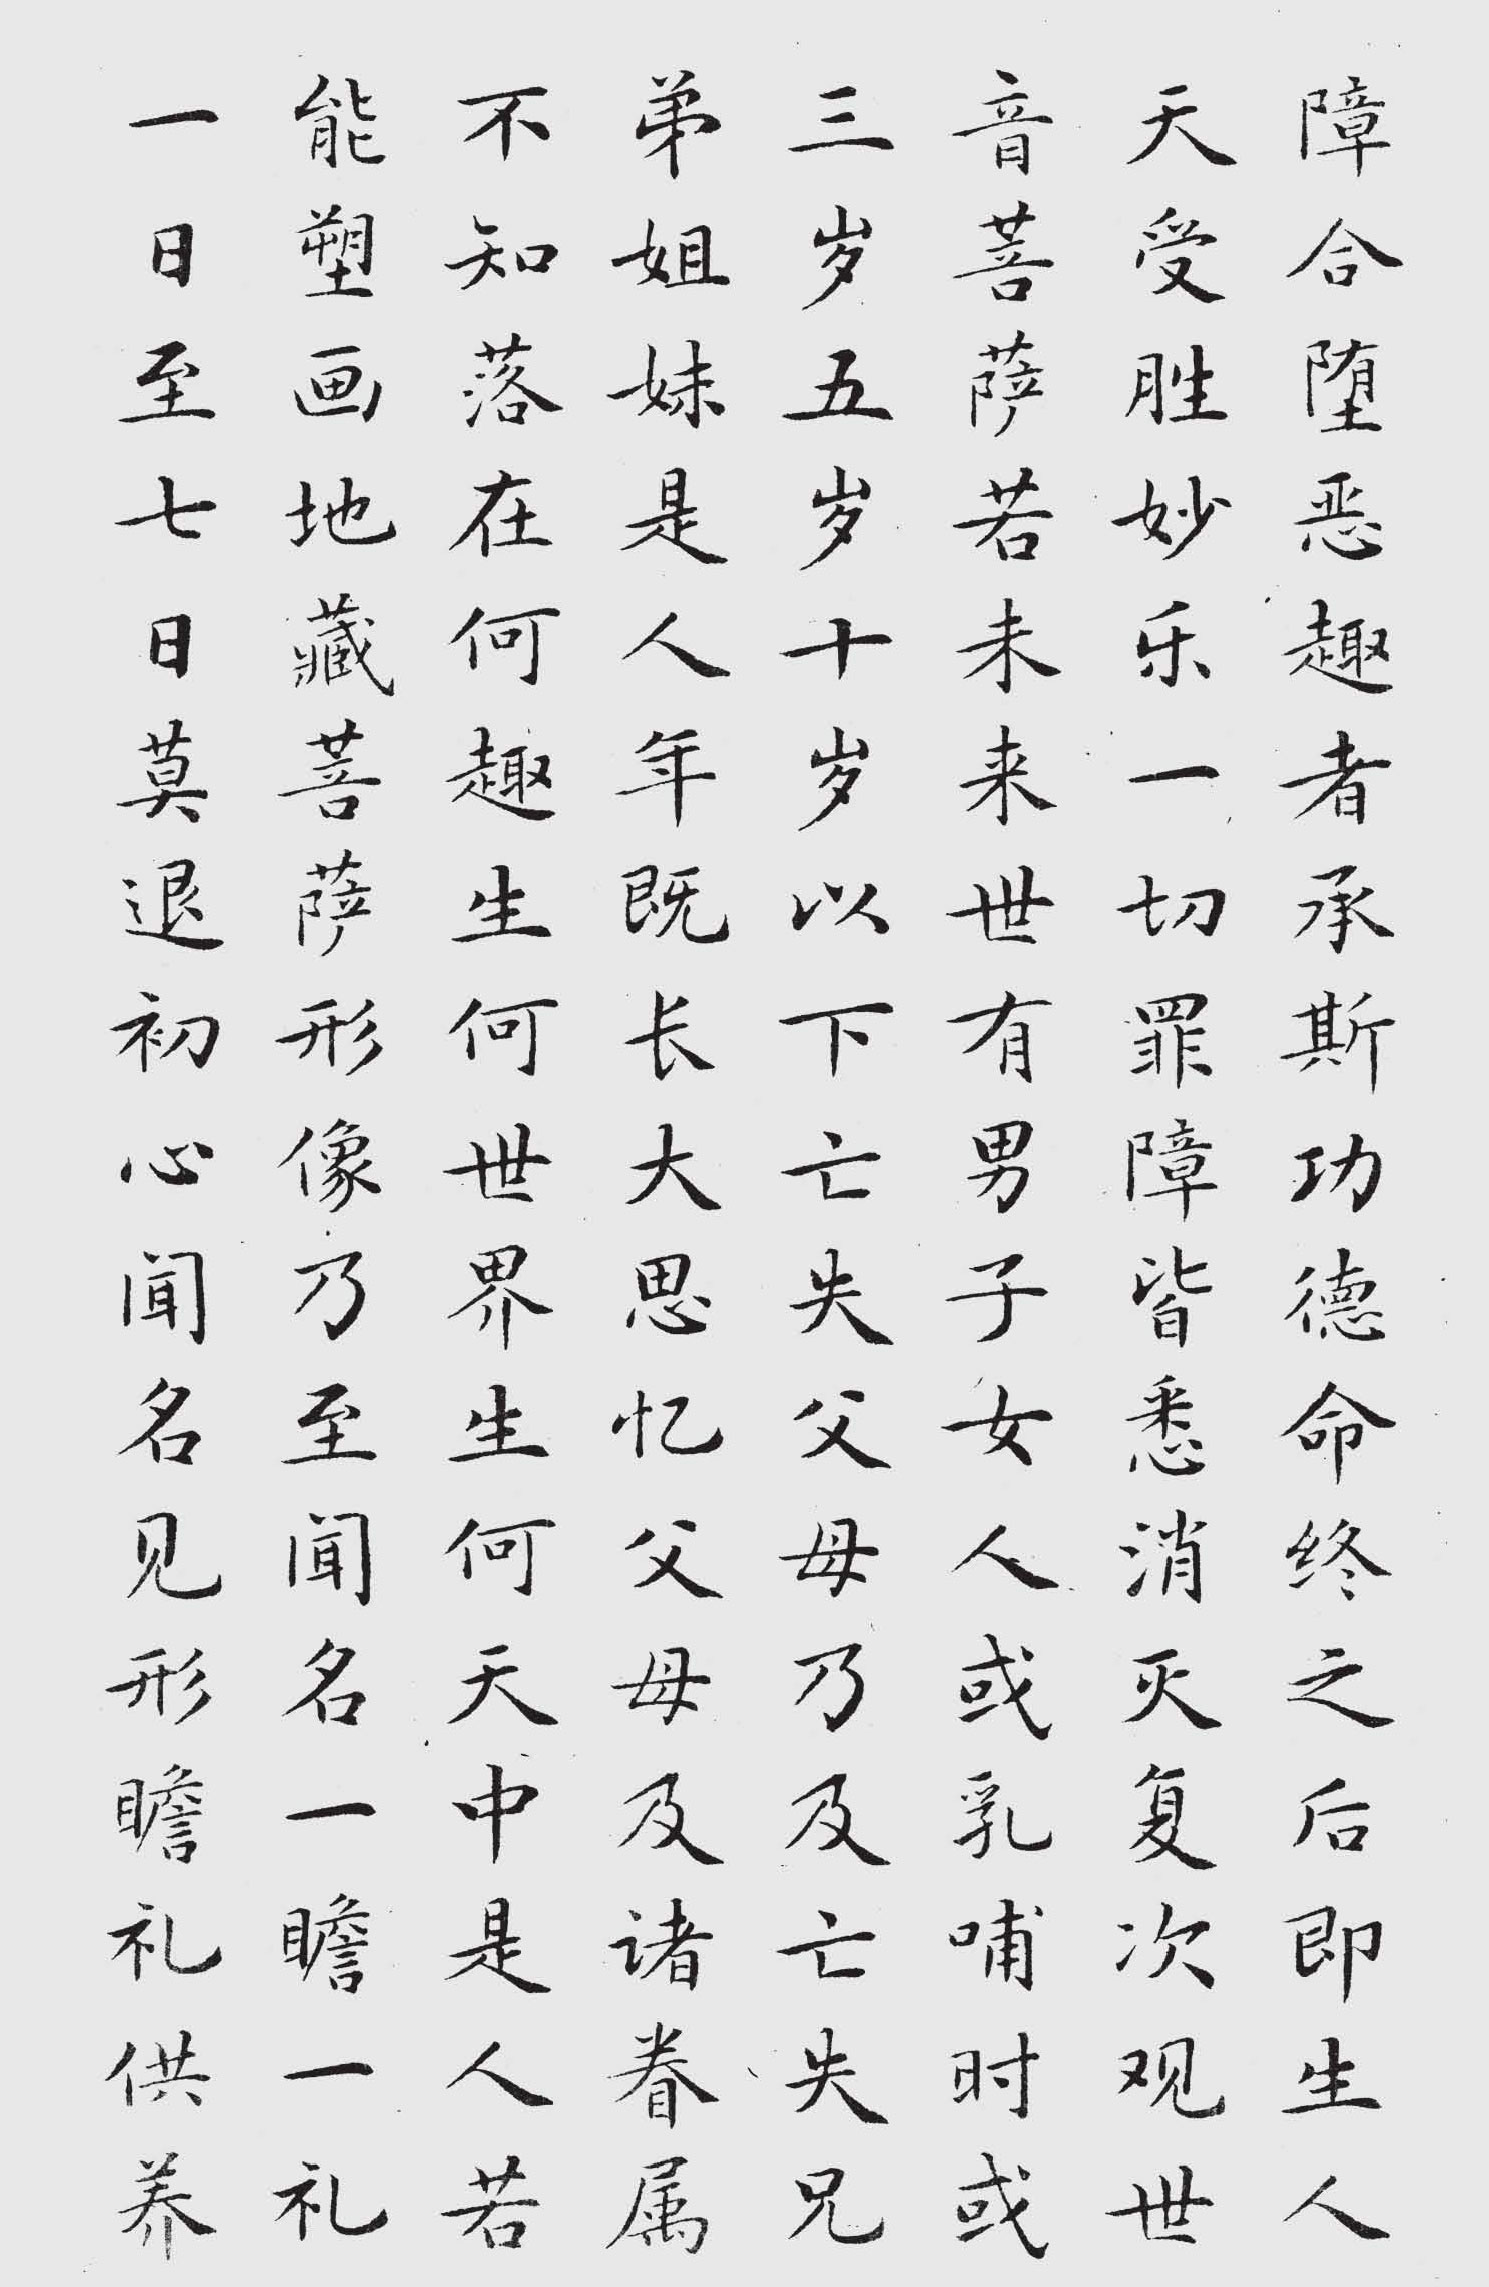 障合堕恶趣者承斯功德命终之后即生人
天受胜妙乐一切罪障皆悉消灭复次观世
音菩萨若未来世有男子女人或乳哺时或
三岁五岁十岁以下亡失父母乃及亡失兄
弟姐妹是人年既长大思忆父母及诸眷属
不知落在何趣生何世界生何天中是人若
能塑画地藏菩萨形像乃至闻名一瞻一礼
一日至七日莫退初心闻名见形瞻礼供养